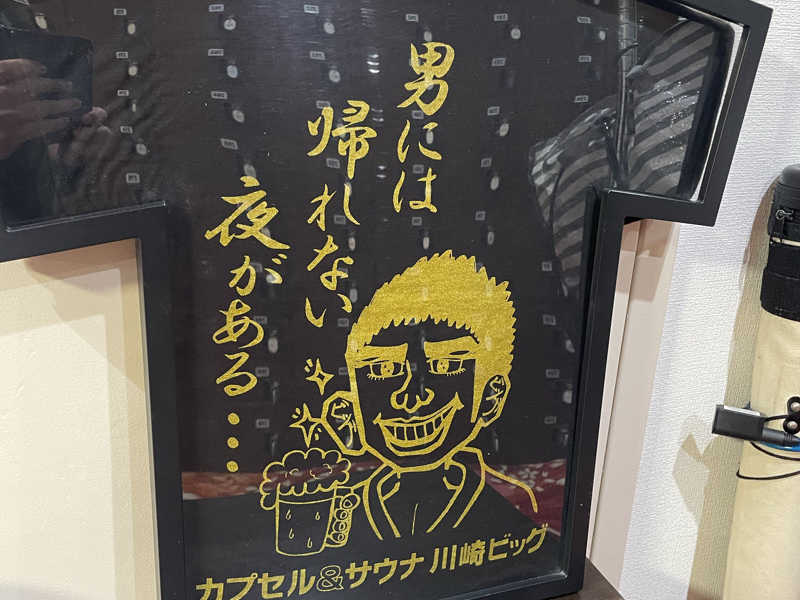 男には
帰れない
夜がある…
カプセル&サウナ 川崎ビッグ